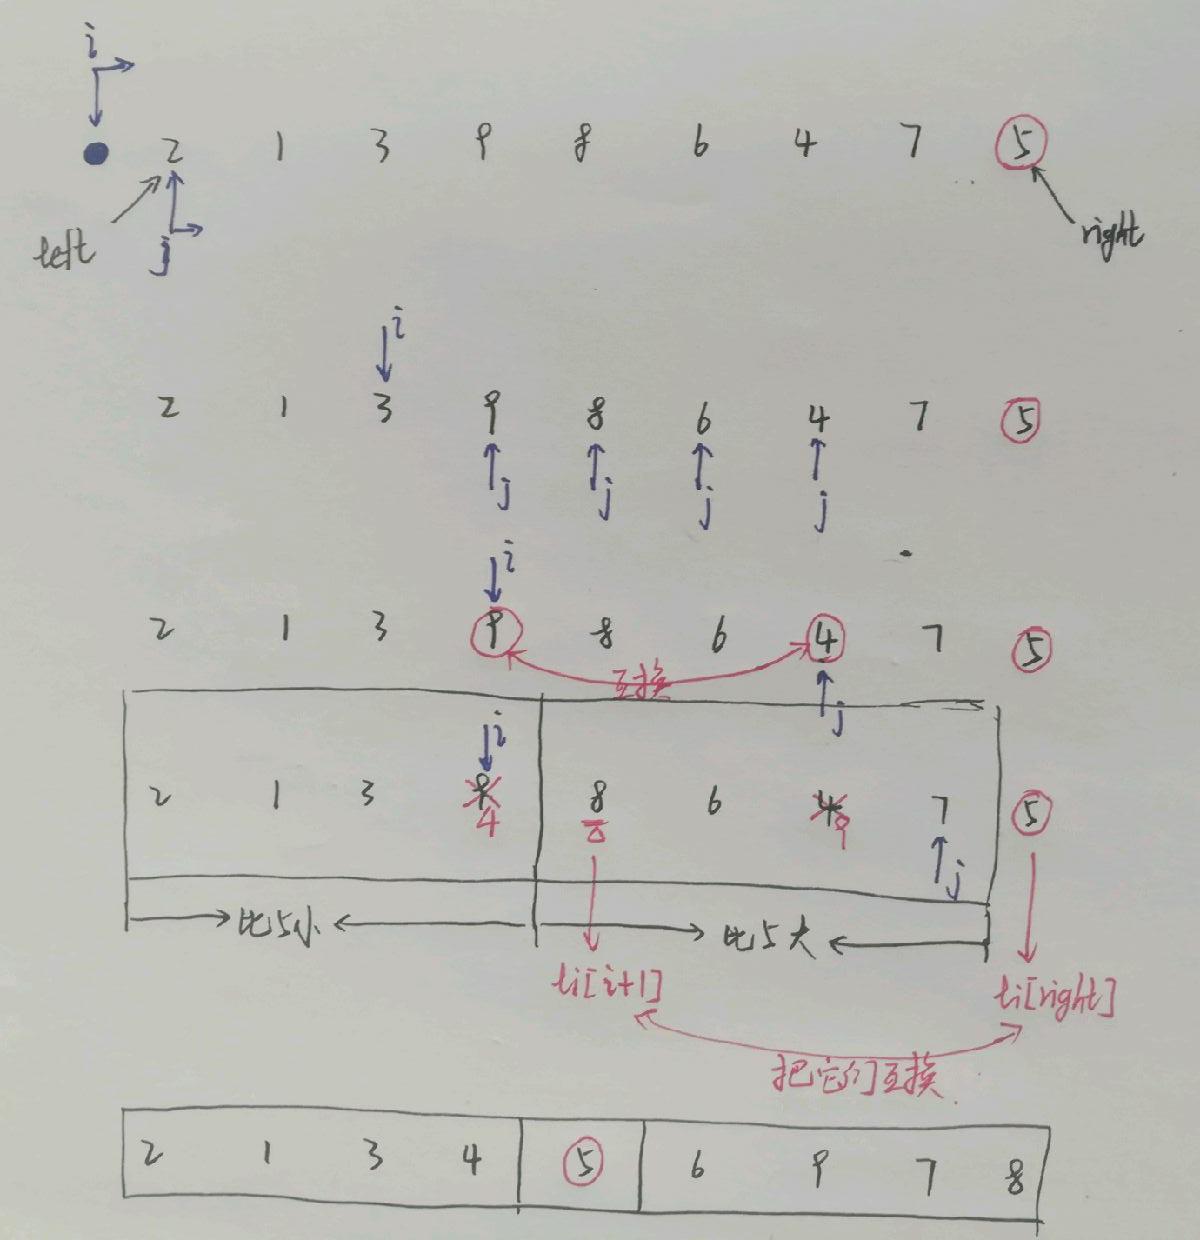 i
2 1 3 9 8 6 4 7 5
left j right
i
2 1 3 9 8 6 4 7 5
j j j j
i
2 1 3 9 8 6 4 7 5
互换
j
i
2 1 3 9 8 6 4 7 5
4 9
j
比5小 比5大
li[i+1] li[right]
把它们互换
2 1 3 4 5 6 9 7 8